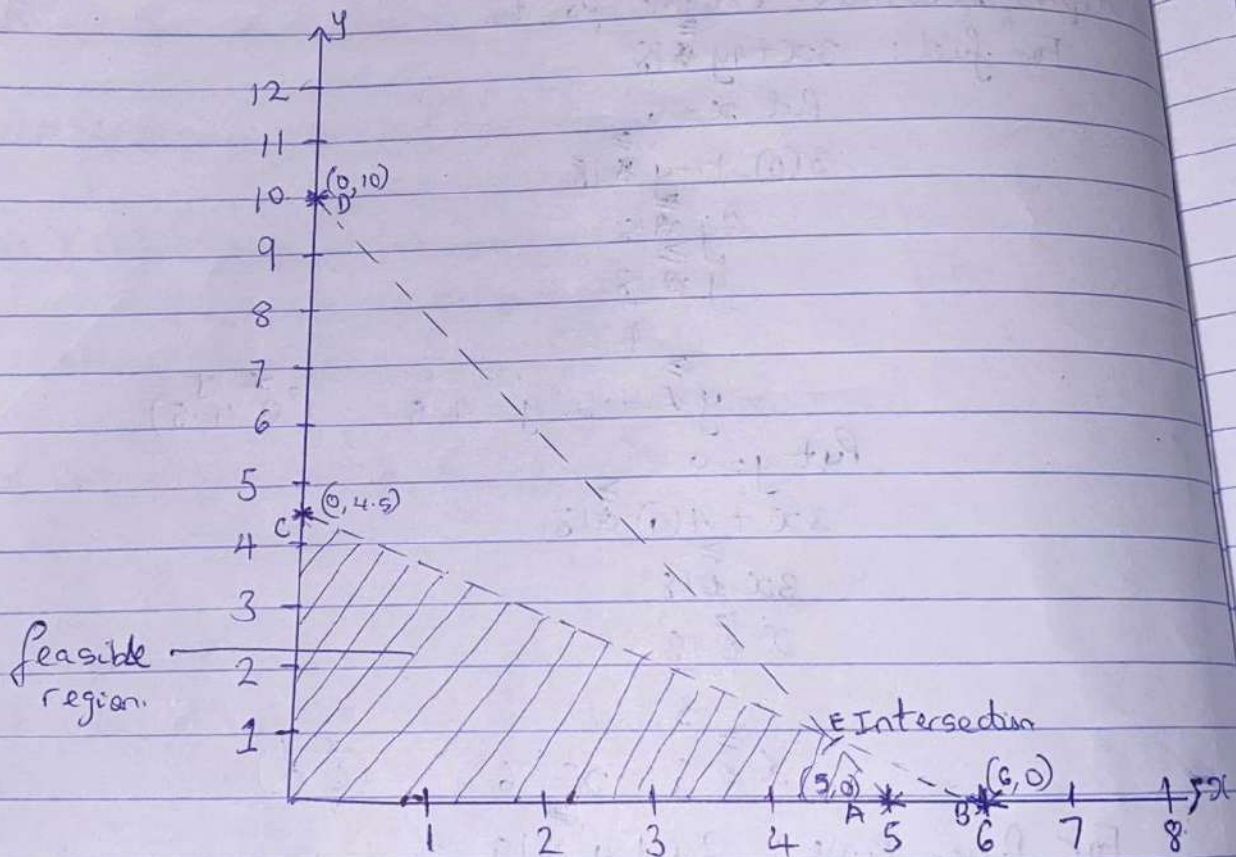 y
12
11
(0,10)
10 D
9
8
7
6
5
(0, 4.5)
C
4
3
feasible
region.
2
1
E Intersection
(5,0)
A
B
(6,0)
x
1 2 3 4 5 6 7 8